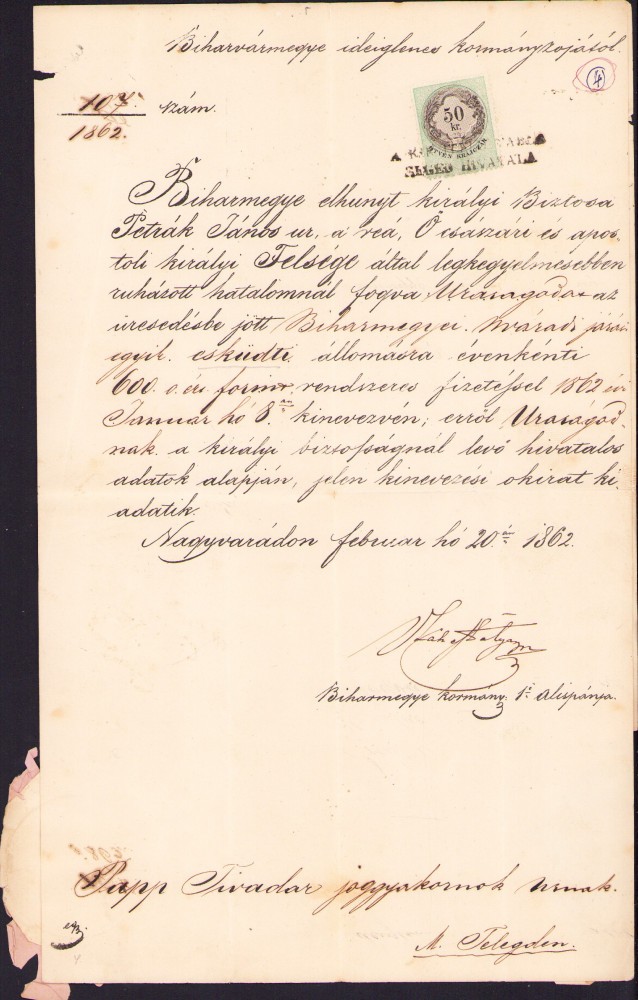 Biharvármegye ideiglenes kormányzójától.
4
107. szám.
1862.
50
kr.
A K
SEGÉD HIVATALA
Biharmegye elhunyt királyi Biztosa
Petrák János ur, a reá, Ő császári és apos-
toli királyi Felsége által legkegyelmesebben
ruházott hatalomnál fogva Uraságodat az
üresedésbe jött Biharmegyei. Nváradi járási
egyik. esküdti állomásra évenkénti
600. o. ért. forint. rendszeres fizetéssel 1862 évi
Január hó 8.án kinevezvén; erről Uraságod-
nak a királyi biztosságnál levő hivatalos
adatok alapján, jelen kinevezési okirat ki-
adatik.
Nagyvárádon február hó 20.án 1862.
Biharmegye kormány. 1ső alispánja.
Papp Tivadar joggyakornok urnak.
M. Telegden.